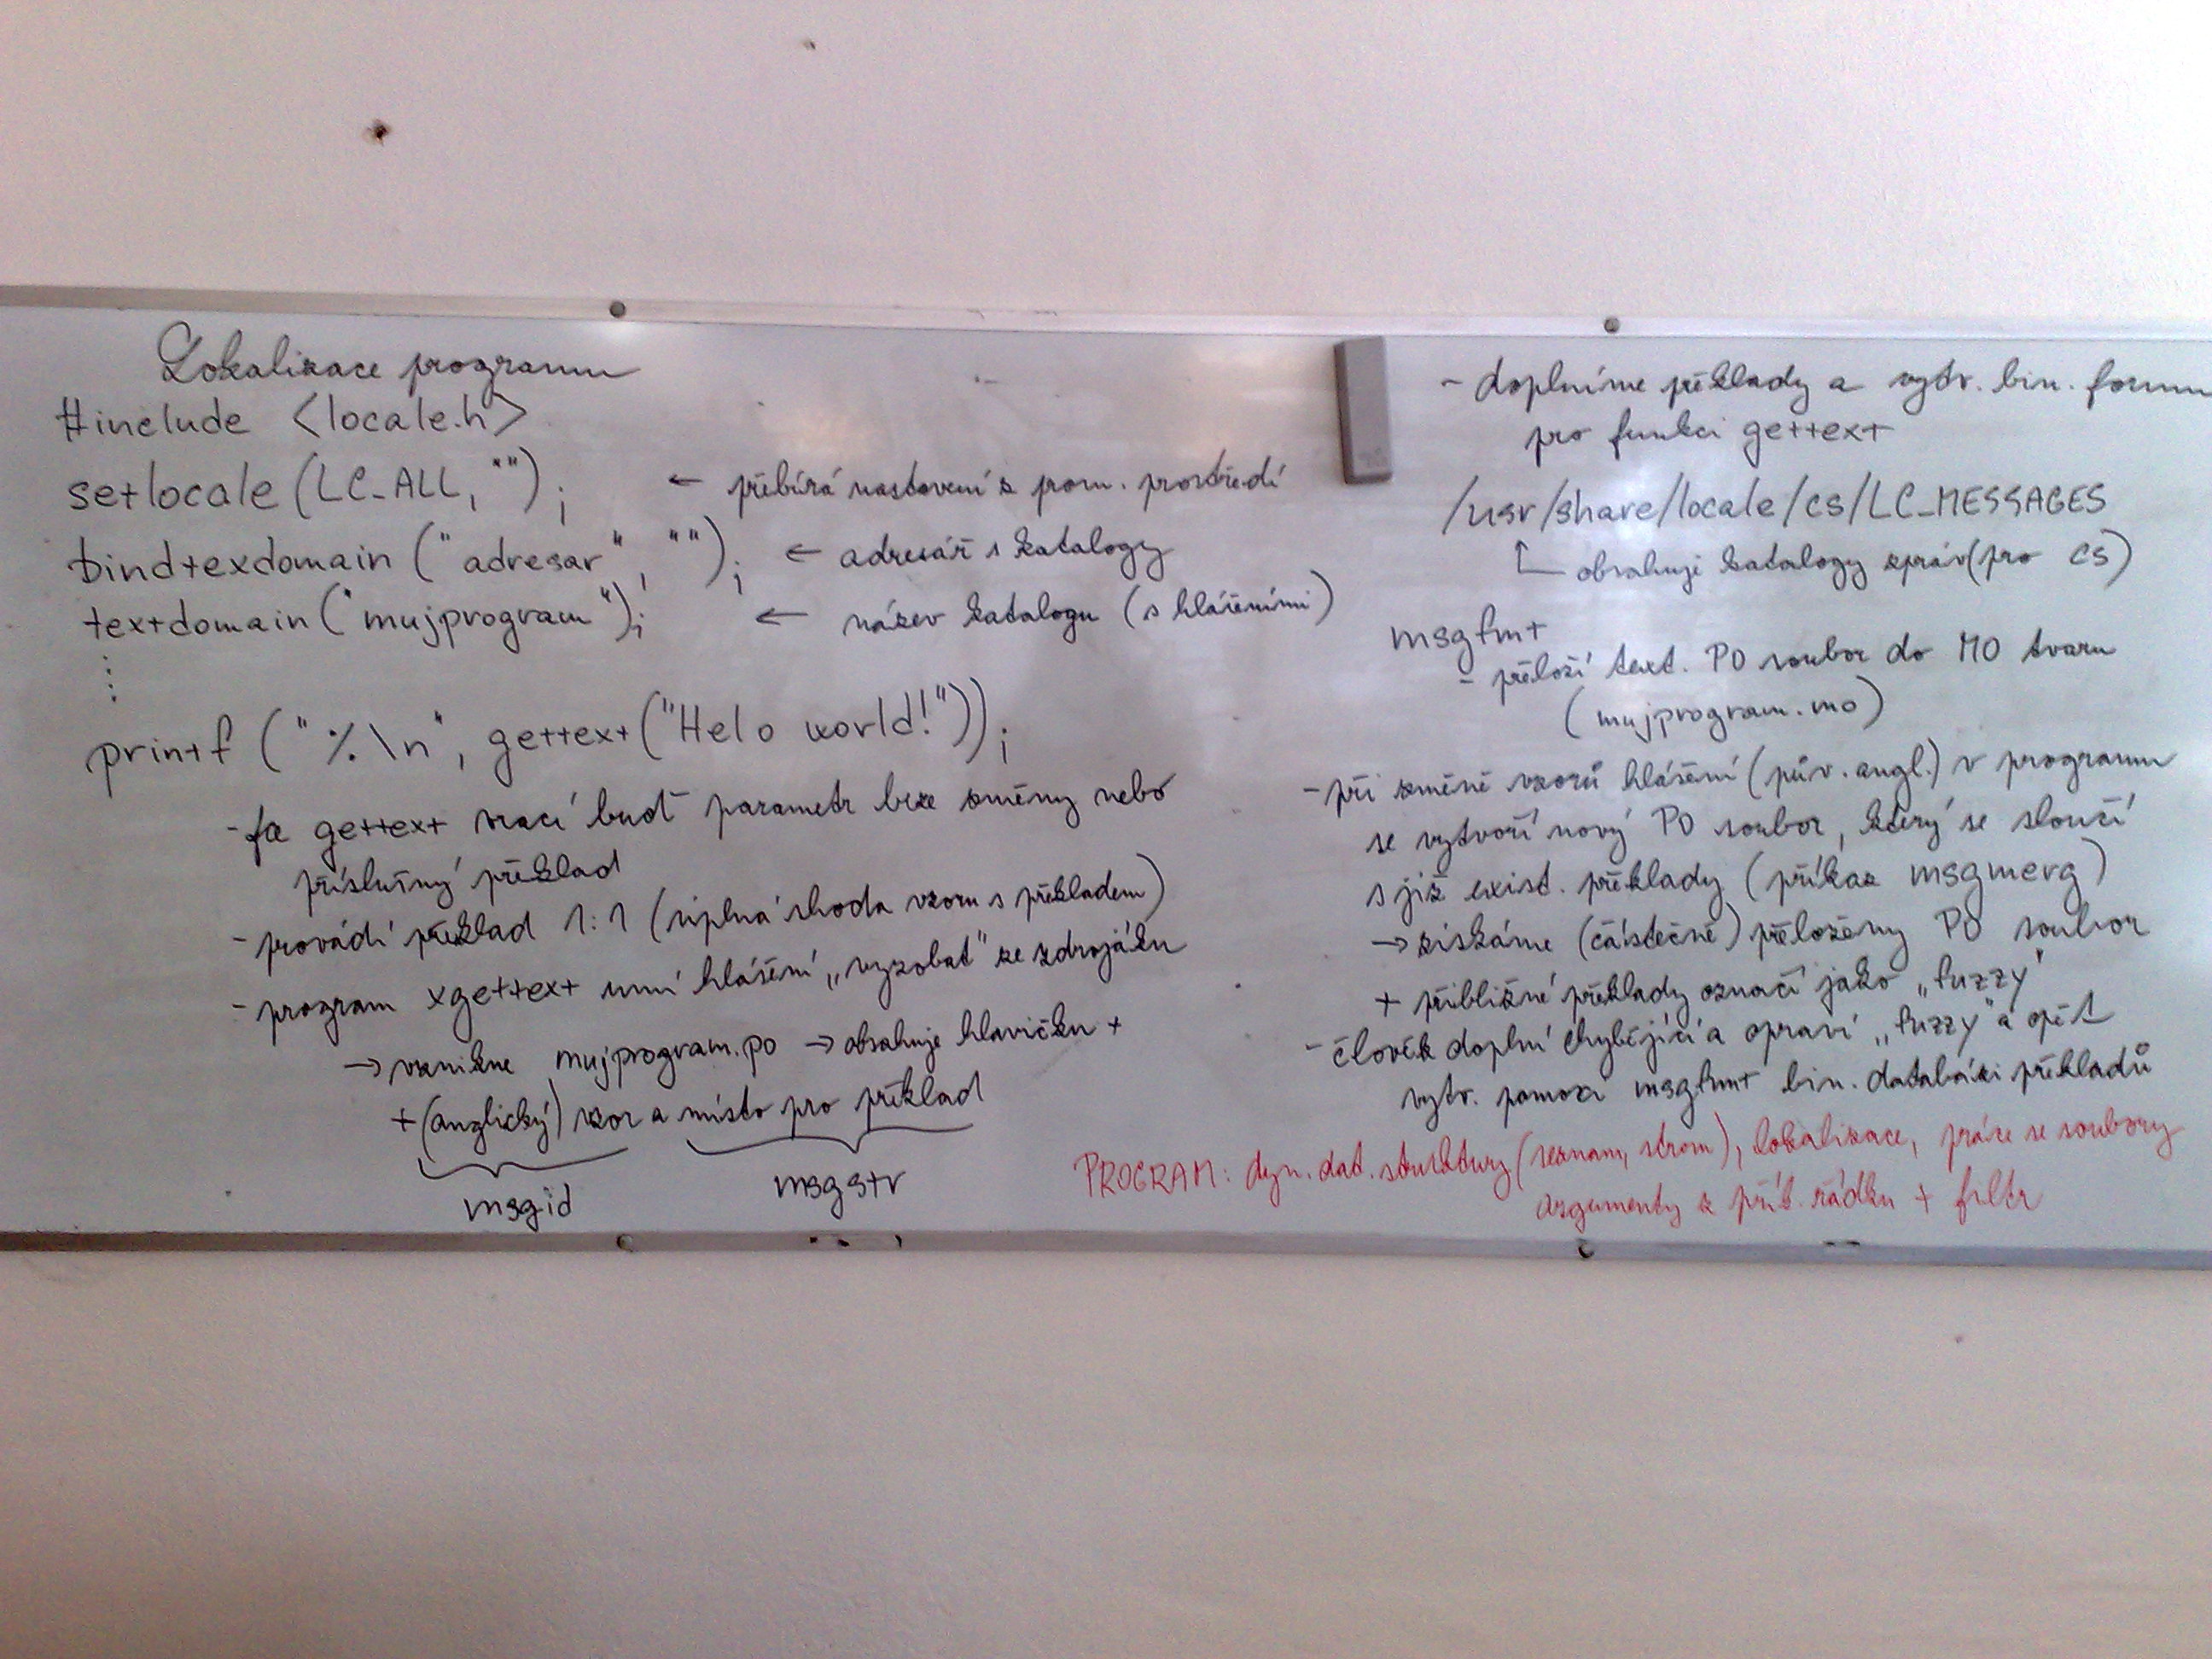 Lokalizace programu
#include <locale.h>
setlocale (LC_ALL, ""); ← přebírá nastavení z prom. prostředí
bindtexdomain ("adresar", ""); ← adresář s katalogy
textdomain ("mujprogram"); ← název katalogu (s hlášeními)
⋮
printf ("%\n", gettext("Helo world!"));
- fce gettext vrací buď parametr beze změny nebo
příslušný překlad
- provádí překlad 1:1 (úplná shoda vzoru s překladem)
- program xgettext umí hlášení „vyzobat" ze zdrojáku
→ vznikne mujprogram.po → obsahuje hlavičku +
+ (anglický) vzor a místo pro překlad
msgid msgstr
- doplníme překlady a vytv. bin. formu
pro funkci gettext
/usr/share/locale/cs/LC_MESSAGES
obsahuje katalogy zpráv (pro CS)
msgfmt
- přeloží text. PO soubor do MO tvaru
(mujprogram.mo)
- při změně vzorů hlášení (pův. angl.) v programu
se vytvoří nový PO soubor, který se sloučí
s již exist. překlady (příkaz msgmerg)
→ získáme (částečně) přeložený PO soubor
+ přibližné překlady označí jako „fuzzy"
- člověk doplní chybějící a opraví „fuzzy" a opět
vytv. pomocí msgfmt bin. databázi překladů
PROGRAM: dyn. dat. struktury (seznam, strom), lokalizace, práce se soubory
argumenty z přík. řádku + filtr